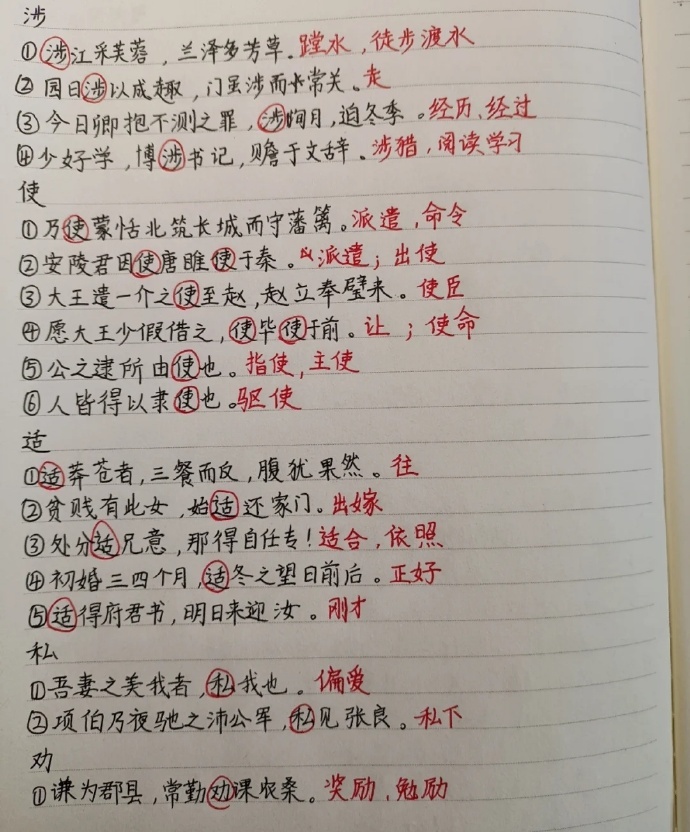 涉
①涉江采芙蓉，兰泽多芳草。蹚水，徒步渡水
②园日涉以成趣，门虽涉而常关。走
③今日卿抱不测之罪，涉旬月，迫冬季。经历、经过
④少好学，博涉书记，赡于文辞。涉猎，阅读学习
使
①乃使蒙恬北筑长城而守藩篱。派遣，命令
②安陵君因使唐雎使于秦。派遣；出使
③大王遣一介之使至赵，赵立奉璧来。使臣
④愿大王少假借之，使毕使于前。让；使命
⑤公之逮所由使也。指使，主使
⑥人皆得以隶使也。驱使
适
①适莽苍者，三餐而反，腹犹果然。往
②贫贱有此女，始适还家门。出嫁
③处分适兄意，那得自任专！适合，依照
④初婚三四个月，适冬之望日前后。正好
⑤适得府君书，明日来迎汝。刚才
私
①吾妻之美我者，私我也。偏爱
②项伯乃夜驰之沛公军，私见张良。私下
劝
①谦为郡县，常勤劝课农桑。奖励，勉励